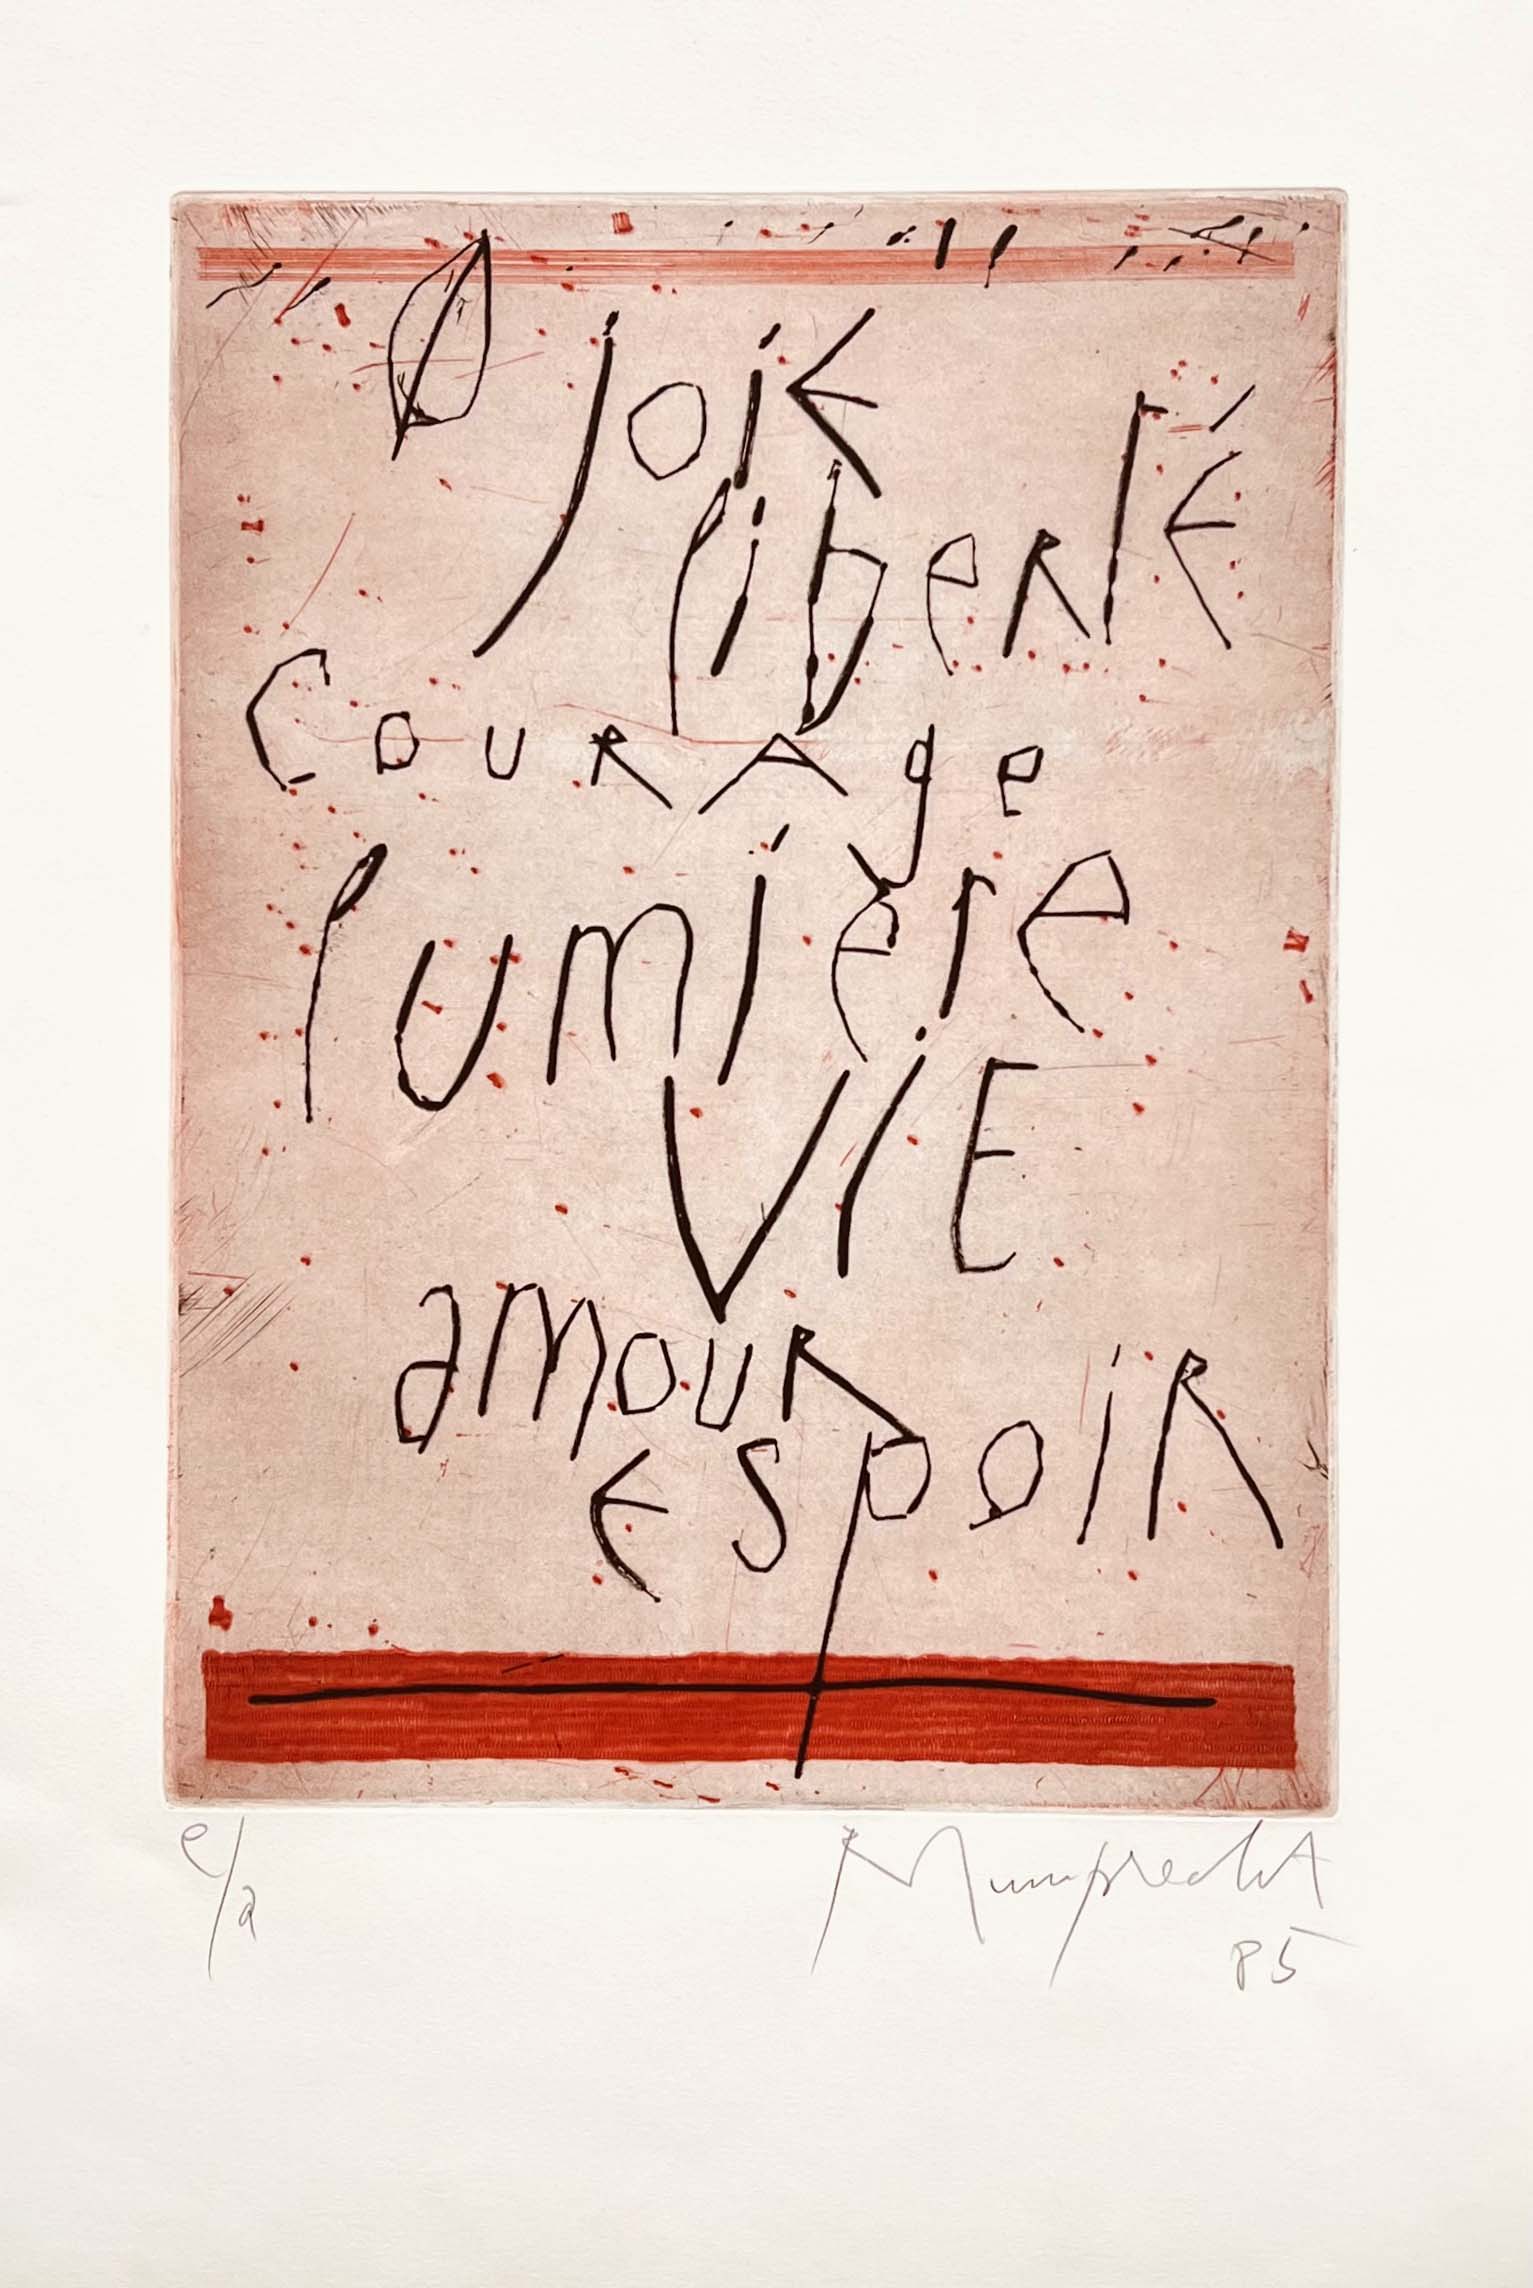 joie
liberté
Courage
lumière
Vie
amour
espoir
e/a
R Mumprecht
85